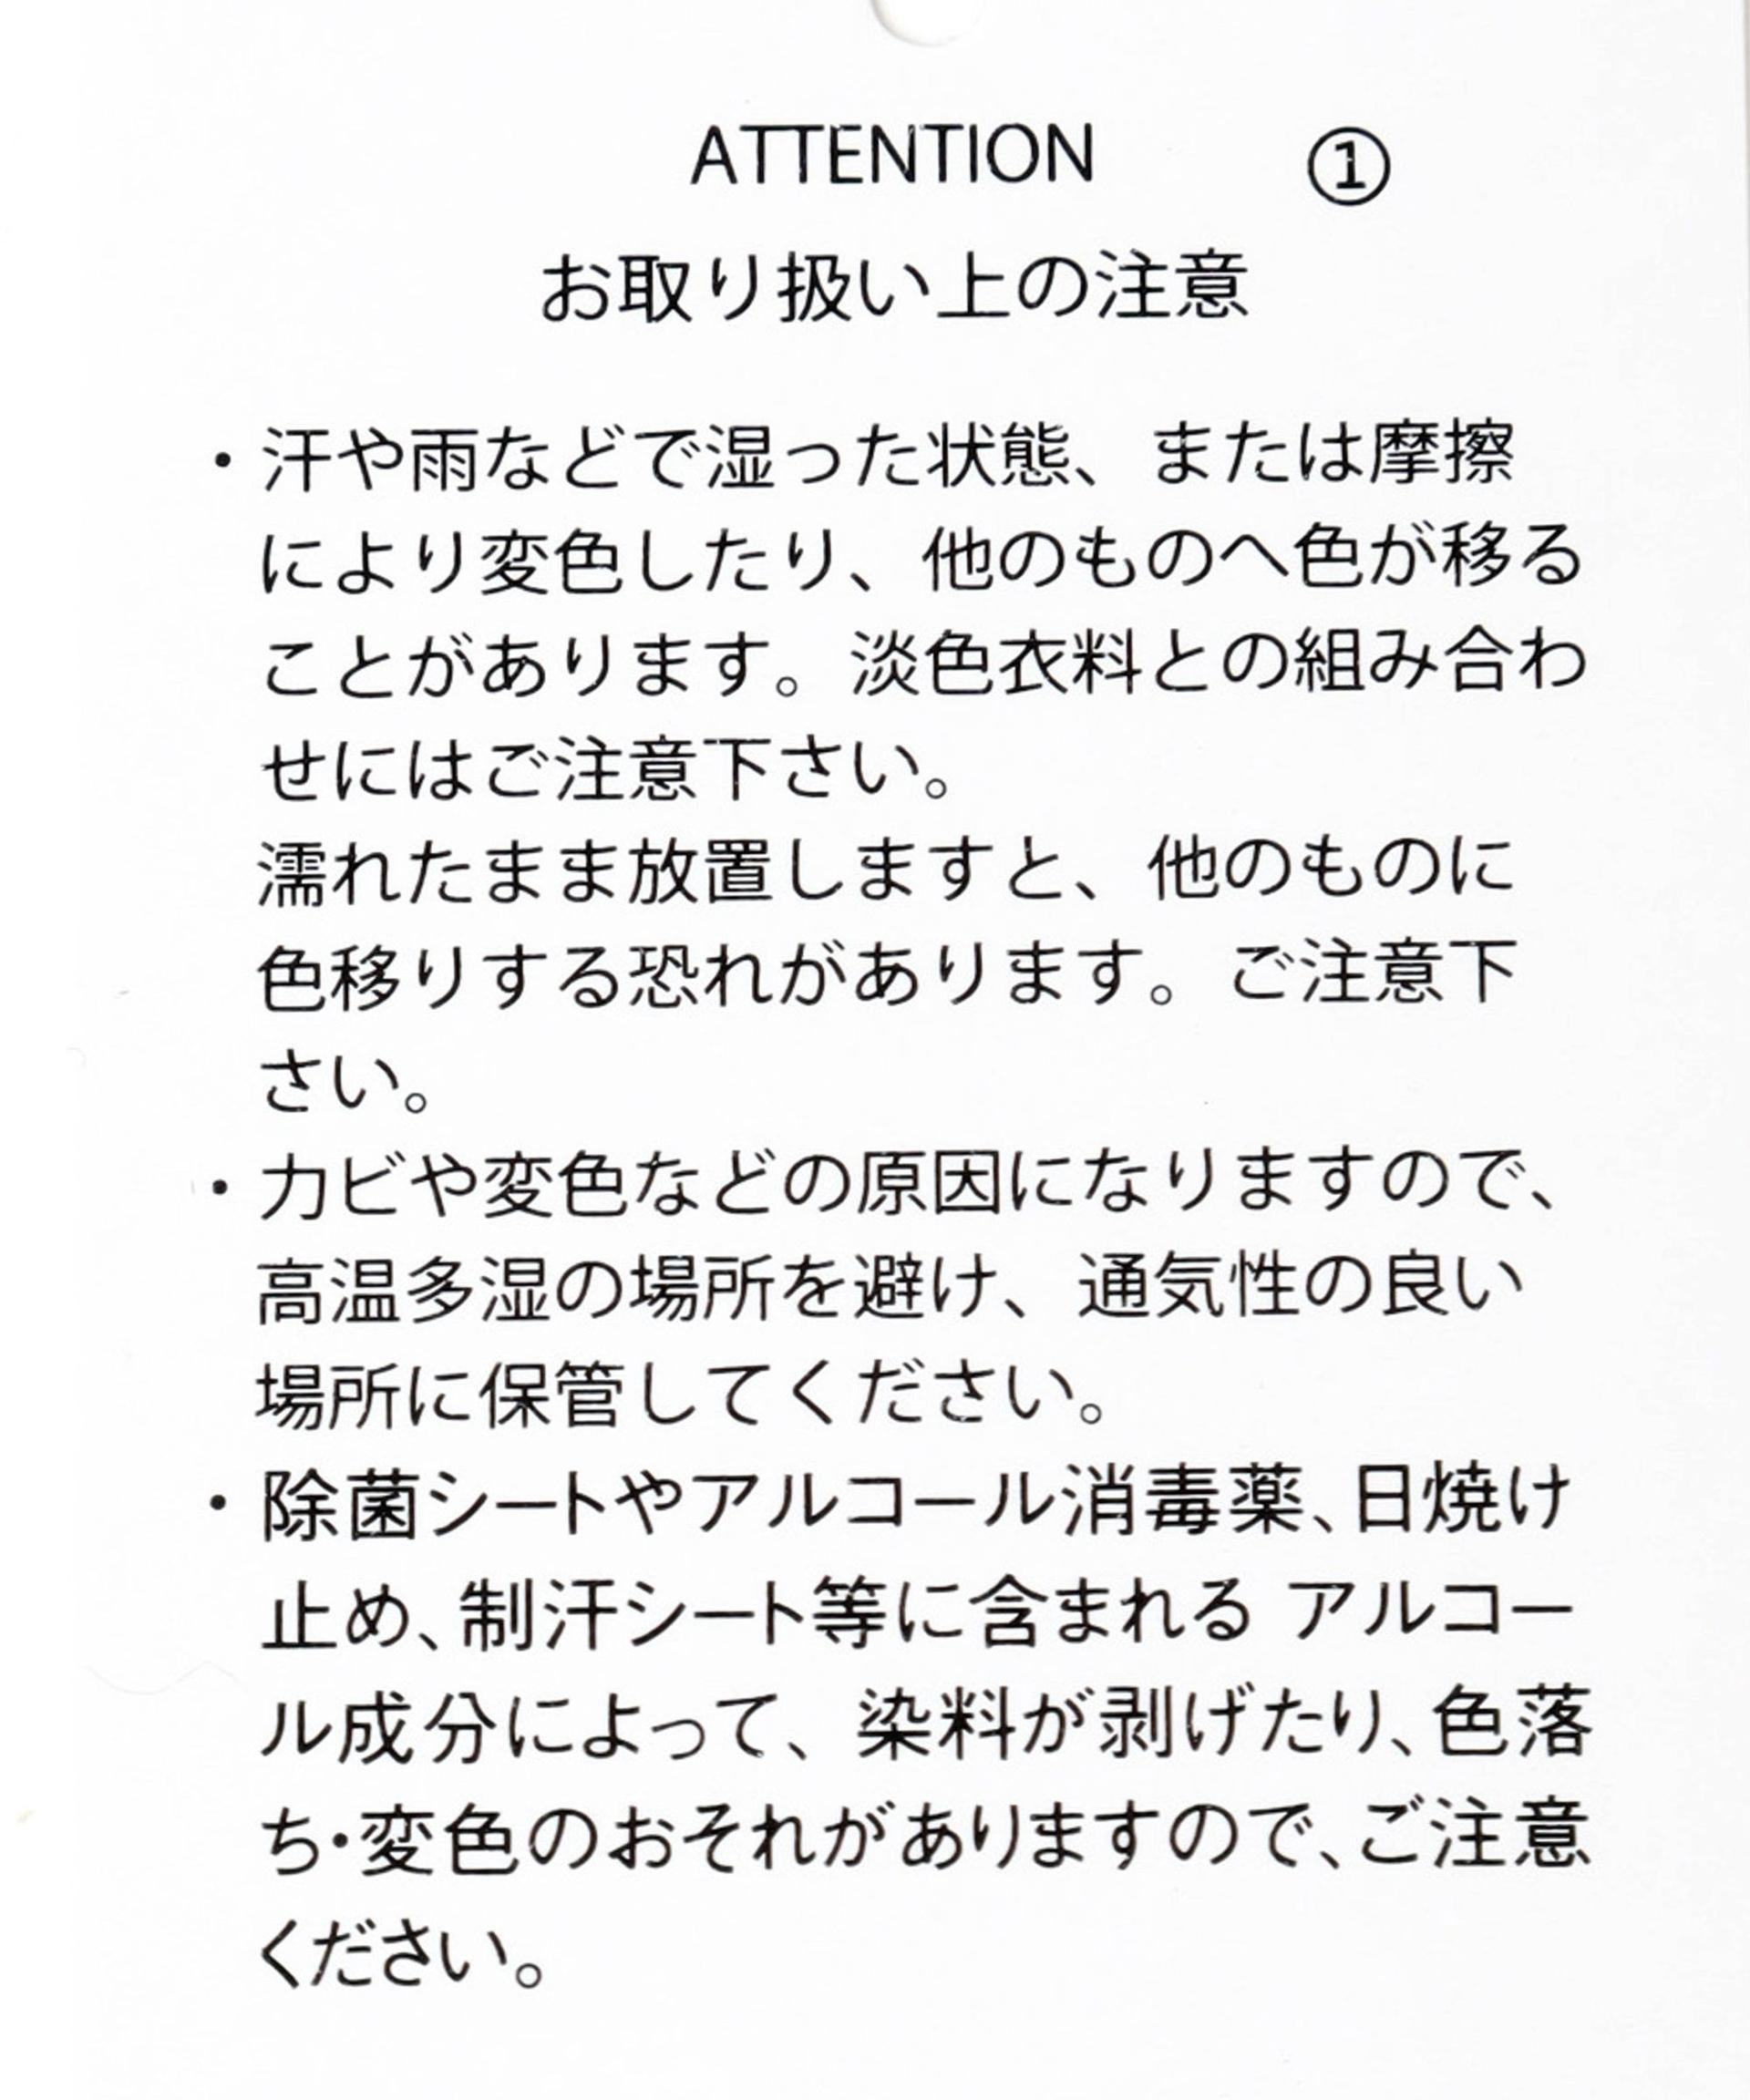 ATTENTION ①
お取り扱い上の注意
・汗や雨などで湿った状態、または摩擦
により変色したり、他のものへ色が移る
ことがあります。淡色衣料との組み合わ
せにはご注意下さい。
濡れたまま放置しますと、他のものに
色移りする恐れがあります。ご注意下
さい。
・カビや変色などの原因になりますので、
高温多湿の場所を避け、通気性の良い
場所に保管してください。
・除菌シートやアルコール消毒薬、日焼け
止め、制汗シート等に含まれる アルコー
ル成分によって、染料が剥げたり、色落
ち・変色のおそれがありますので、ご注意
ください。